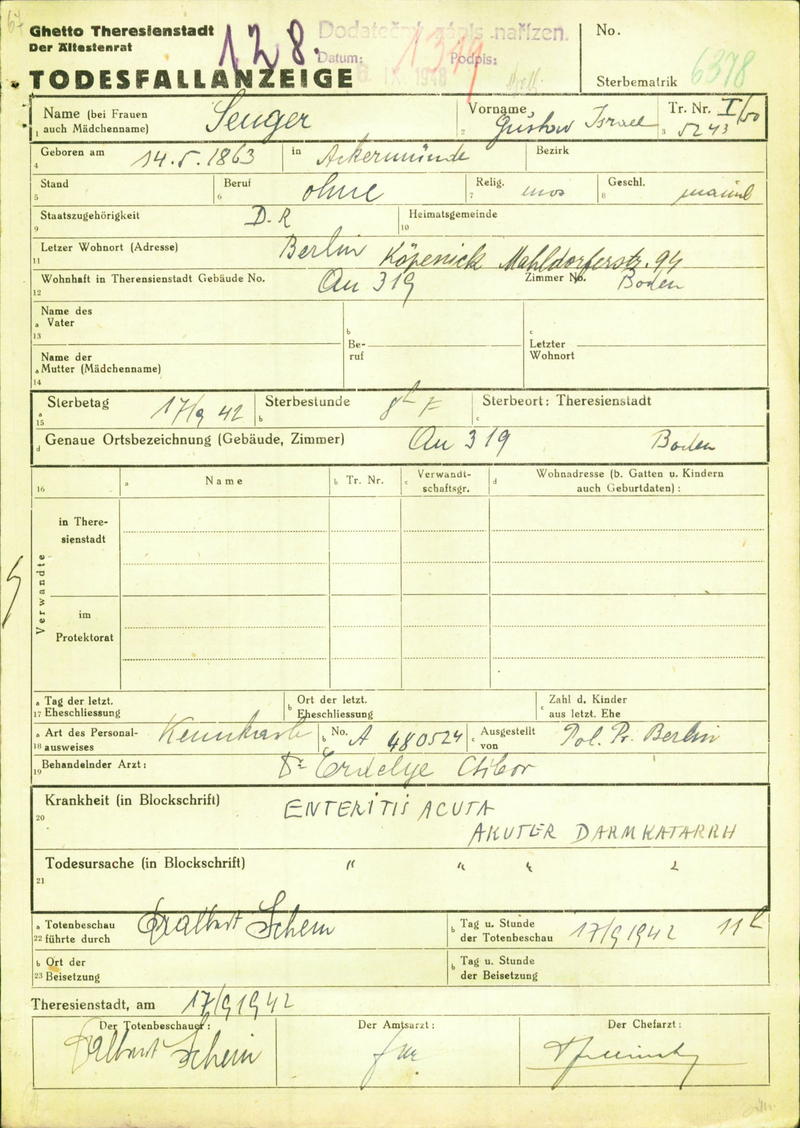 Ghetto Theresienstadt
Der Ältestenrat
TODESFALLANZEIGE
128.
Dodatečný zápis nařízen.
Datum: IX. 1948 Podpis:
1319
No.
Sterbematrik 6378
Name (bei Frauen
1 auch Mädchenname) Senger
Vorname 2 Gustav Israel
Tr. Nr. 3 I/50
5243
Geboren am 4 14.5.1863 in Ackermünde Bezirk
Stand 5
Beruf 6 ohne
Relig. 7 mos
Geschl. 8 männl
Staatszugehörigkeit 9 D.R
Heimatsgemeinde 10
Letzer Wohnort (Adresse) 11 Berlin Köpenick Mahldorferstr. 94
Wohnhaft in Theresienstadt Gebäude No. 12 Au 319 Zimmer No. Boden
Name des
a Vater
13
b
Be-
ruf
c
Letzter
Wohnort
Name der
a Mutter (Mädchenname)
14
a Sterbetag 15 17/9 42
b Sterbestunde 8h
c Sterbeort: Theresienstadt
d Genaue Ortsbezeichnung (Gebäude, Zimmer) Au 319 Boden
16
a Name
b Tr. Nr.
c Verwandt-
schaftsgr.
d Wohnadresse (b. Gatten u. Kindern
auch Geburtdaten) :
Verwandte
in There-
sienstadt
im
Protektorat
a Tag der letzt.
17 Eheschliessung
b Ort der letzt.
Eheschliessung
c Zahl d. Kinder
aus letzt. Ehe
a Art des Personal-
18 ausweises Kennkarte
b No. A 480524
c Ausgestellt
von Pol. Pr. Berlin
19 Behandelnder Arzt: Dr Erdelye Ctibor
Krankheit (in Blockschrift) 20 ENTERITIS ACUTA
AKUTER DARMKATARRH
Todesursache (in Blockschrift) 21 " " " "
a Totenbeschau
22 führte durch Dr Albert Schein
b Tag u. Stunde
der Totenbeschau 17/9 1942 11h
b Ort der
23 Beisetzung
b Tag u. Stunde
der Beisetzung
Theresienstadt, am 17/9 1942
Der Totenbeschauer:
Albert Schein
Der Amtsarzt:
Der Chefarzt: